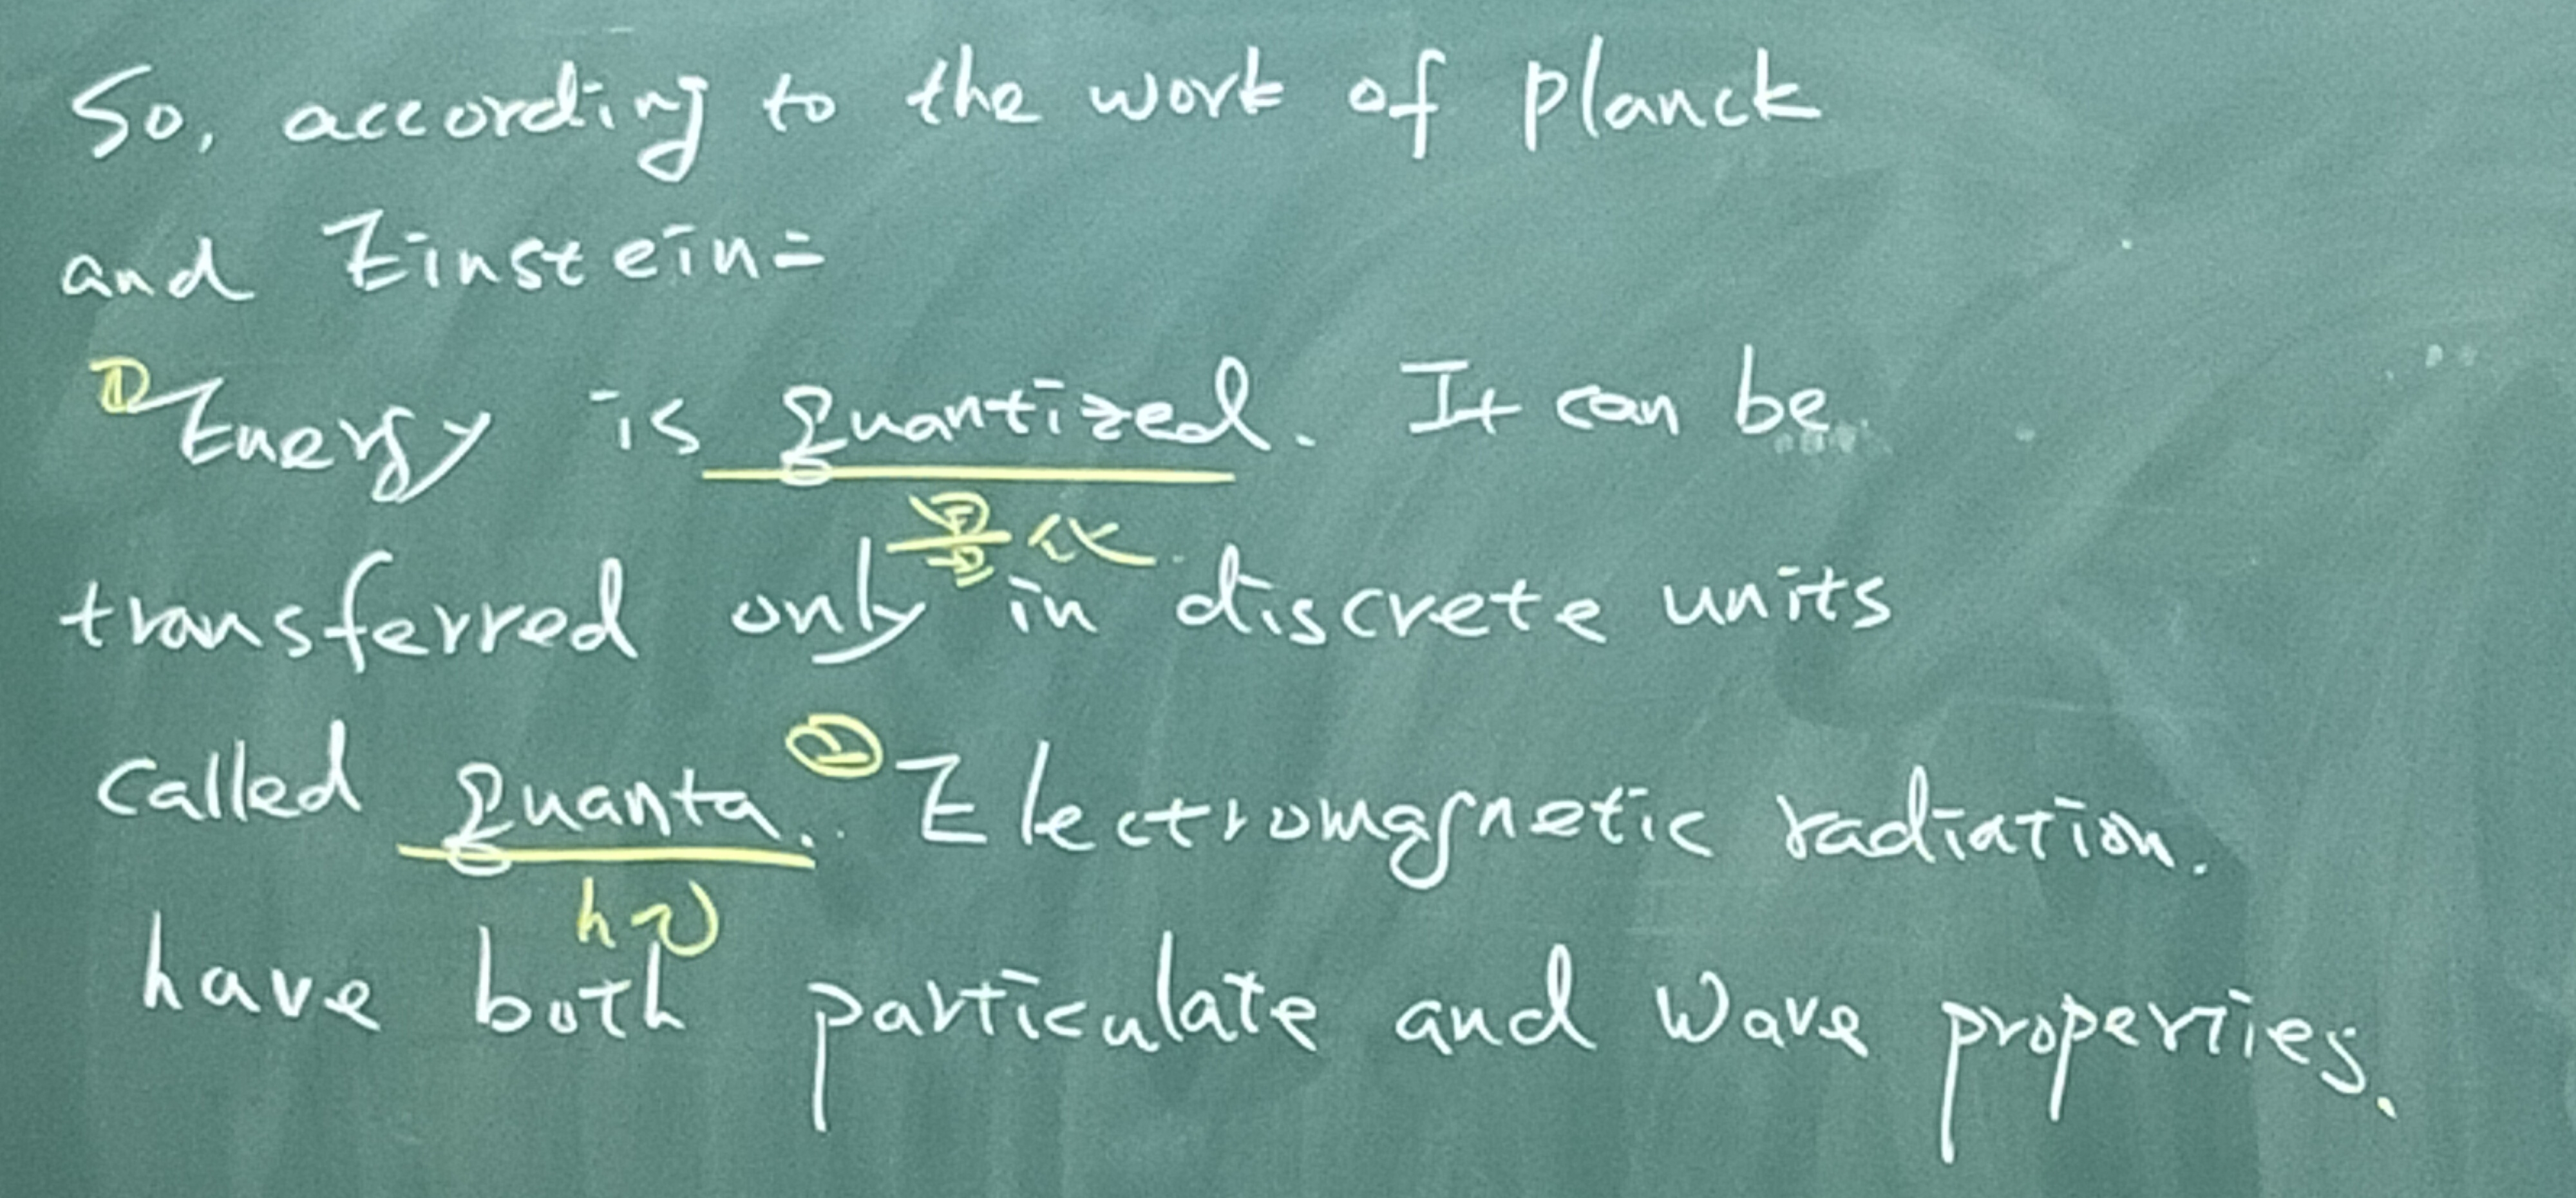 So, according to the work of planck
and Einstein=
① Energy is quantized. It can be
量化
transferred only in discrete units
called quanta. ② Electromagnetic radiation.
hν
have both particulate and wave properties.